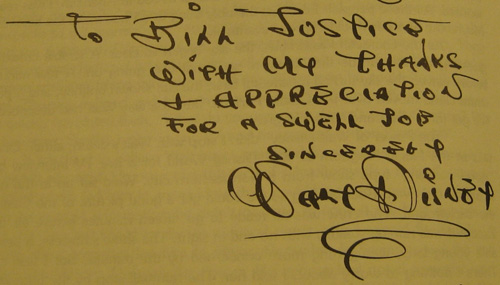 To Bill Justice
With my thanks
+ appreciation
for a swell job
Sincerely
Walt Disney